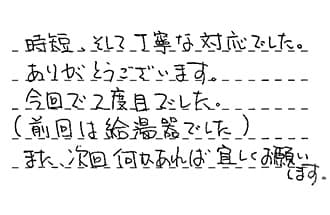 時短、そして丁寧な対応でした。
ありがとうございます。
今回で2度目でした。
(前回は給湯器でした)
また、次回何かあれば宜しくお願い
します。